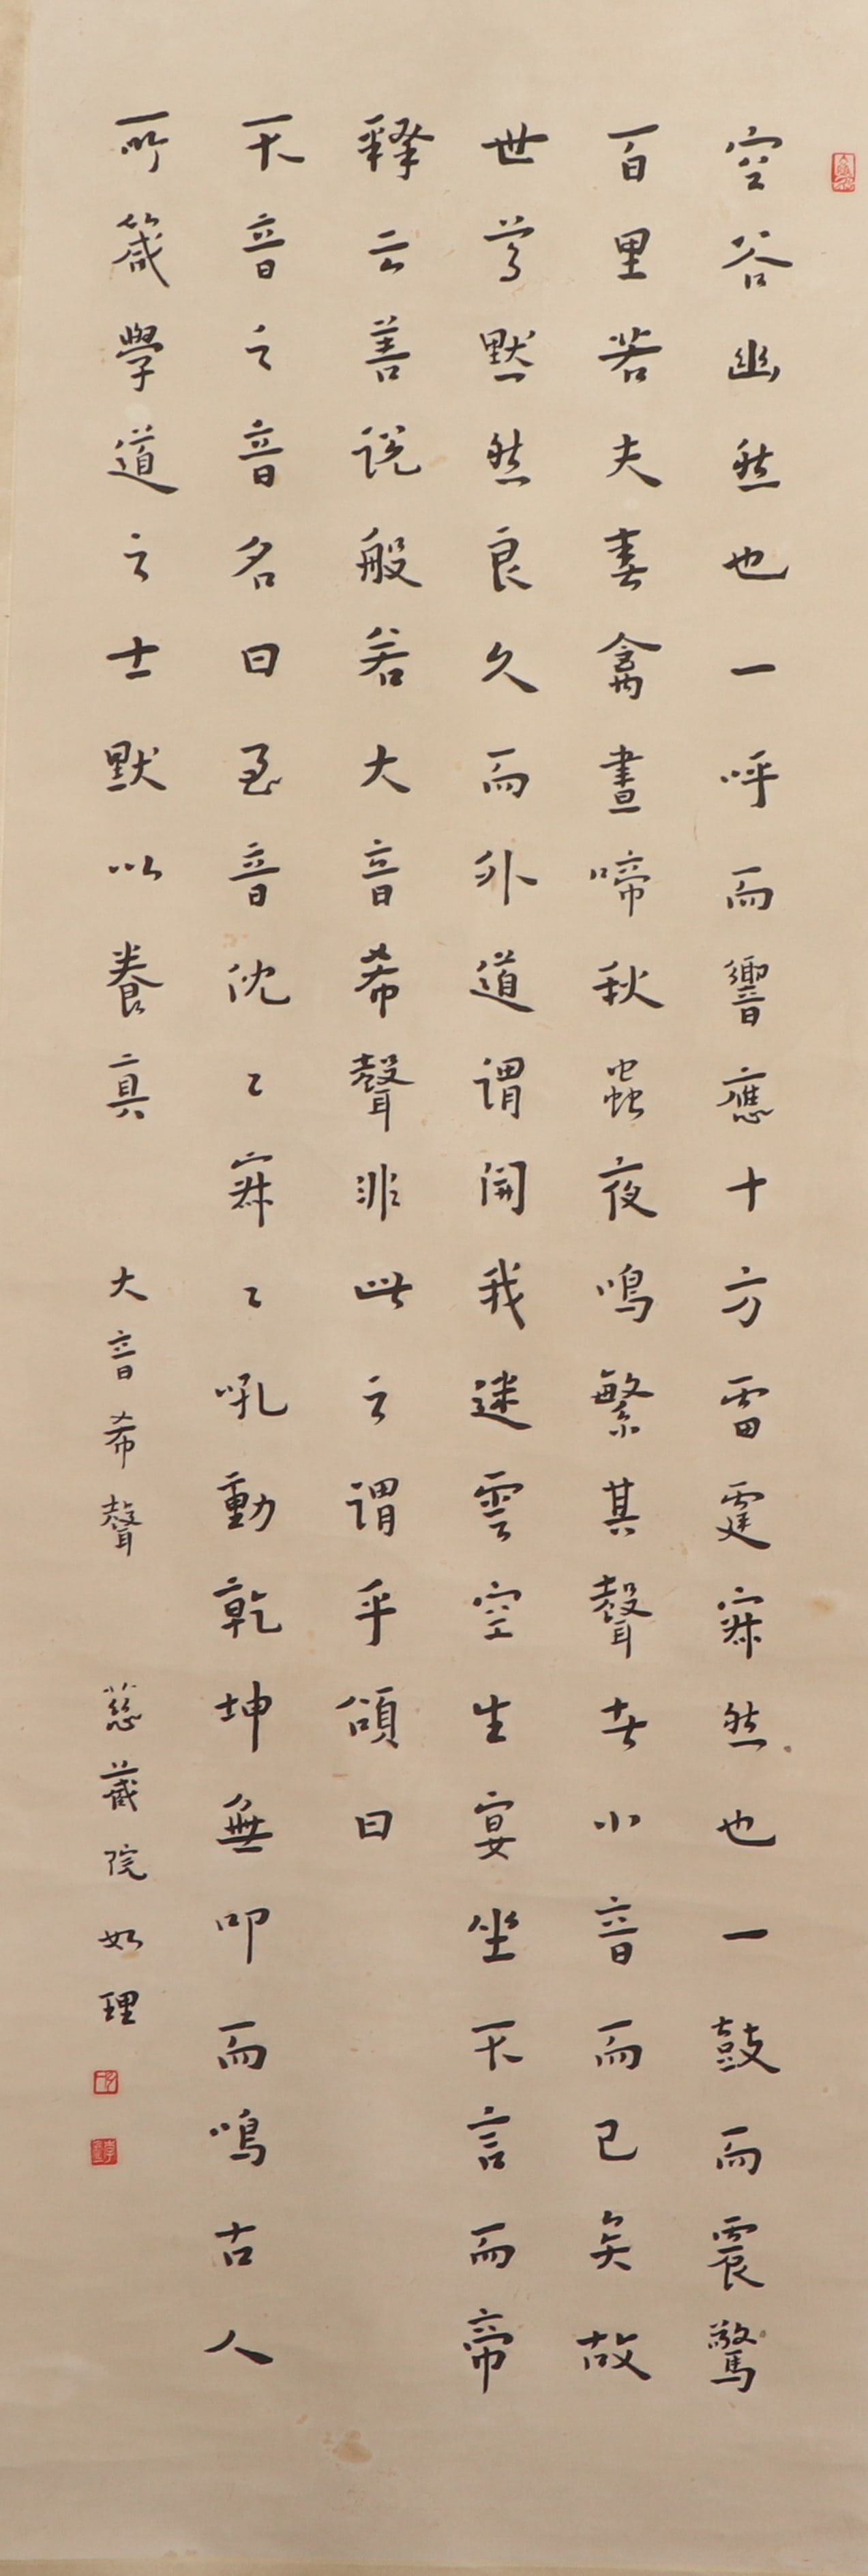 空谷幽然也一呼而響應十方雷霆寂然也一鼓而震驚
百里若夫春禽晝啼秋蟲夜鳴繁其聲者小音而已矣故
世尊默然良久而外道謂開我迷雲空生宴坐不言而帝
釋云善說般若大音希聲非此之謂乎頌曰
不音之音名曰至音沈〻寂〻吼動乾坤無叩而鳴古人
所箴學道之士默以養真 大音希聲 慈藏院如理